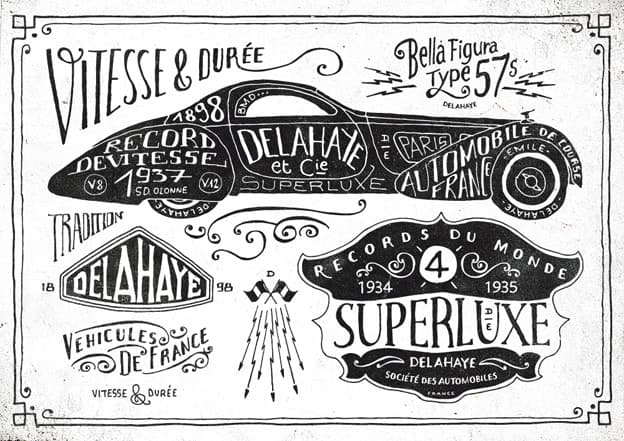 VITESSE & DURÉE
Bellà Figura
Type 57s
DELAHAYE
1898
BMD...
RECORD
DE VITESSE
1937
S.D. OLONNE
V8
V12
DELAHAYE
DELAHAYE
et Cie
SUPERLUXE
DIE
PARIS
AUTOMOBILE DE COURSE
FRANCE
EMILE
DELAHAYE
TRADITION
18 DELAHAYE 98
VEHICULES
DE FRANCE
VITESSE & DURÉE
D
RECORDS DU MONDE
4
1934 1935
SUPERLUXE
DIE
DELAHAYE
SOCIÉTÉ DES AUTOMOBILES
FRANCE